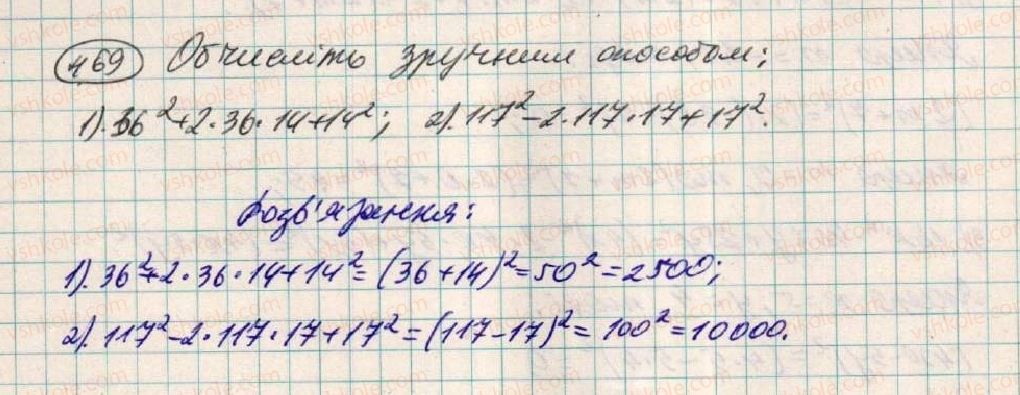 469 Обчисліть зручним способом:
1). 36² + 2·36·14 + 14²; 2). 117² - 2·117·17 + 17².
Розв'язання:
1). 36² + 2·36·14 + 14² = (36 + 14)² = 50² = 2500;
2). 117² - 2·117·17 + 17² = (117 - 17)² = 100² = 10000.